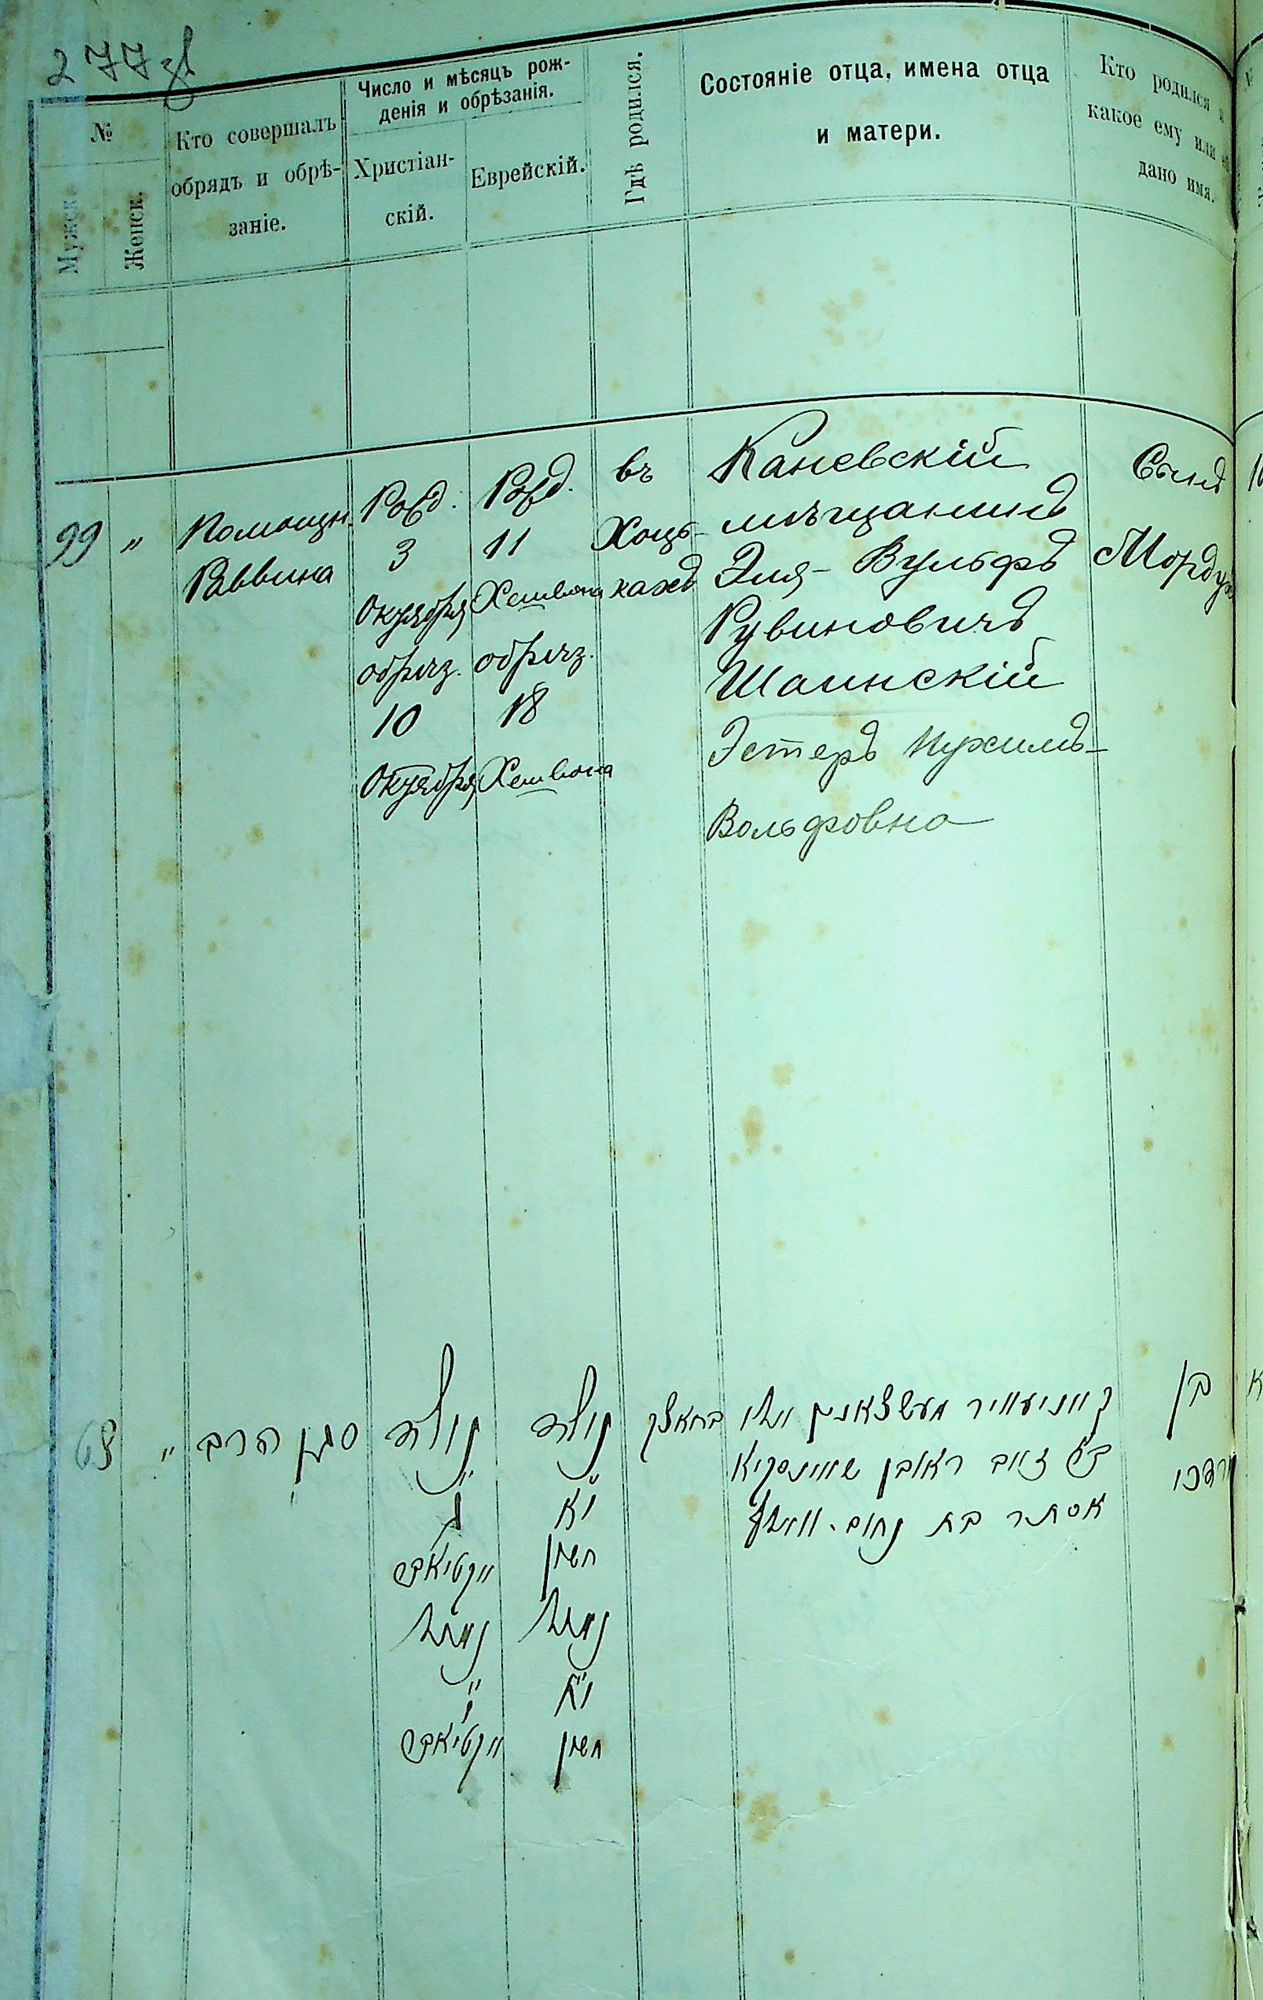 277 об
№
Мужск.
Женск.
Кто совершалъ
обрядъ и обрѣ-
заніе.
Число и мѣсяцъ рож-
денія и обрѣзанія.
Христіан-
скій.
Еврейскій.
Гдѣ родился.
Состояніе отца, имена отца
и матери.
Кто родился и
какое ему или ей
дано имя.
99
"
Помощн.
Раввина
Рожд.
3
Октября
обрѣз.
10
Октября
Рожд.
11
Хешвона
обрѣз.
18
Хешвона
въ
Хоць-
кахъ
Каневскій
мѣщанинъ
Эля-Вульфъ
Рувиновичъ
Шаинскій
Эстеръ Нухимъ-
Вольфовна
Сынъ
Мордух
"
סגן הרב
נולד
ג
אקטיאבר
נימול
י
אקטיאבר
נולד
י"א
חשון
נימול
י"ח
חשון
קאניעוויר מעשצאנין
זאב ראובן שאינסקיא
אסתר בת נחום
בן